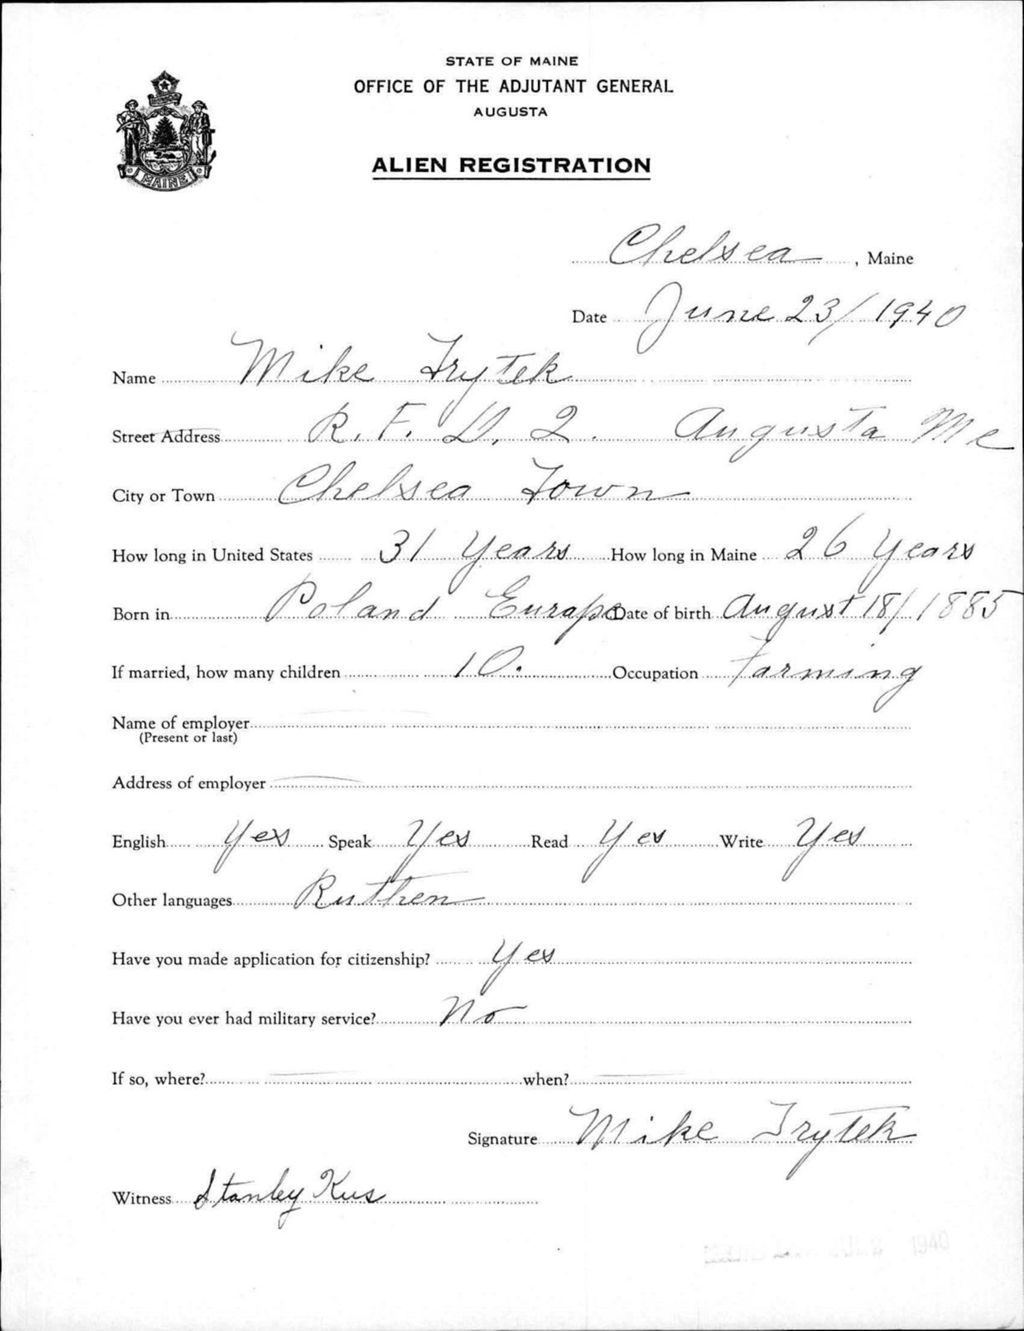 STATE OF MAINE
OFFICE OF THE ADJUTANT GENERAL
AUGUSTA
MAINE
ALIEN REGISTRATION
Chelsea, Maine
Date June 23/1940
Name Mike Trytek
Street Address R. F. D. 2. Augusta Me
City or Town Chelsea Town
How long in United States 31 Years How long in Maine 26 Years
Born in Poland Europe Date of birth August 18/1885
If married, how many children 10. Occupation Farming
Name of employer
(Present or last)
Address of employer
English Yes Speak Yes Read Yes Write Yes
Other languages Ruthen
Have you made application for citizenship? Yes
Have you ever had military service? No
If so, where? when?
Signature Mike Trytek
Witness Stanley Kus
1940